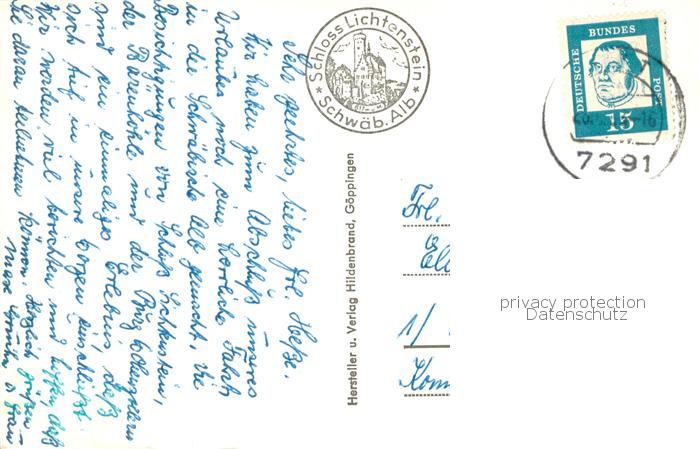 Sehr geehrtes, liebes Frl. Heße.
Wir haben zum Abschluß unseres
Urlaubs noch eine herrliche Fahrt
in die Schwäbische Alb gemacht. Die
Besichtigungen von Schloß Lichtenstein,
der Bärenhöhle und der Burg Hohenzollern
sind ein einmaliges Erlebnis, daß
sich tief in unsere Herzen einschließt.
Wir werden viel berichten und hoffen, daß
Sie daran teilnehmen können. Herzlich grüßen
Max und Frau
Schloss Lichtenstein
Schwäb. Alb
DEUTSCHE BUNDES POST
15
-16
7291
Hersteller u. Verlag Hildenbrand, Göppingen
Frl.
1/
privacy protection
Datenschutz